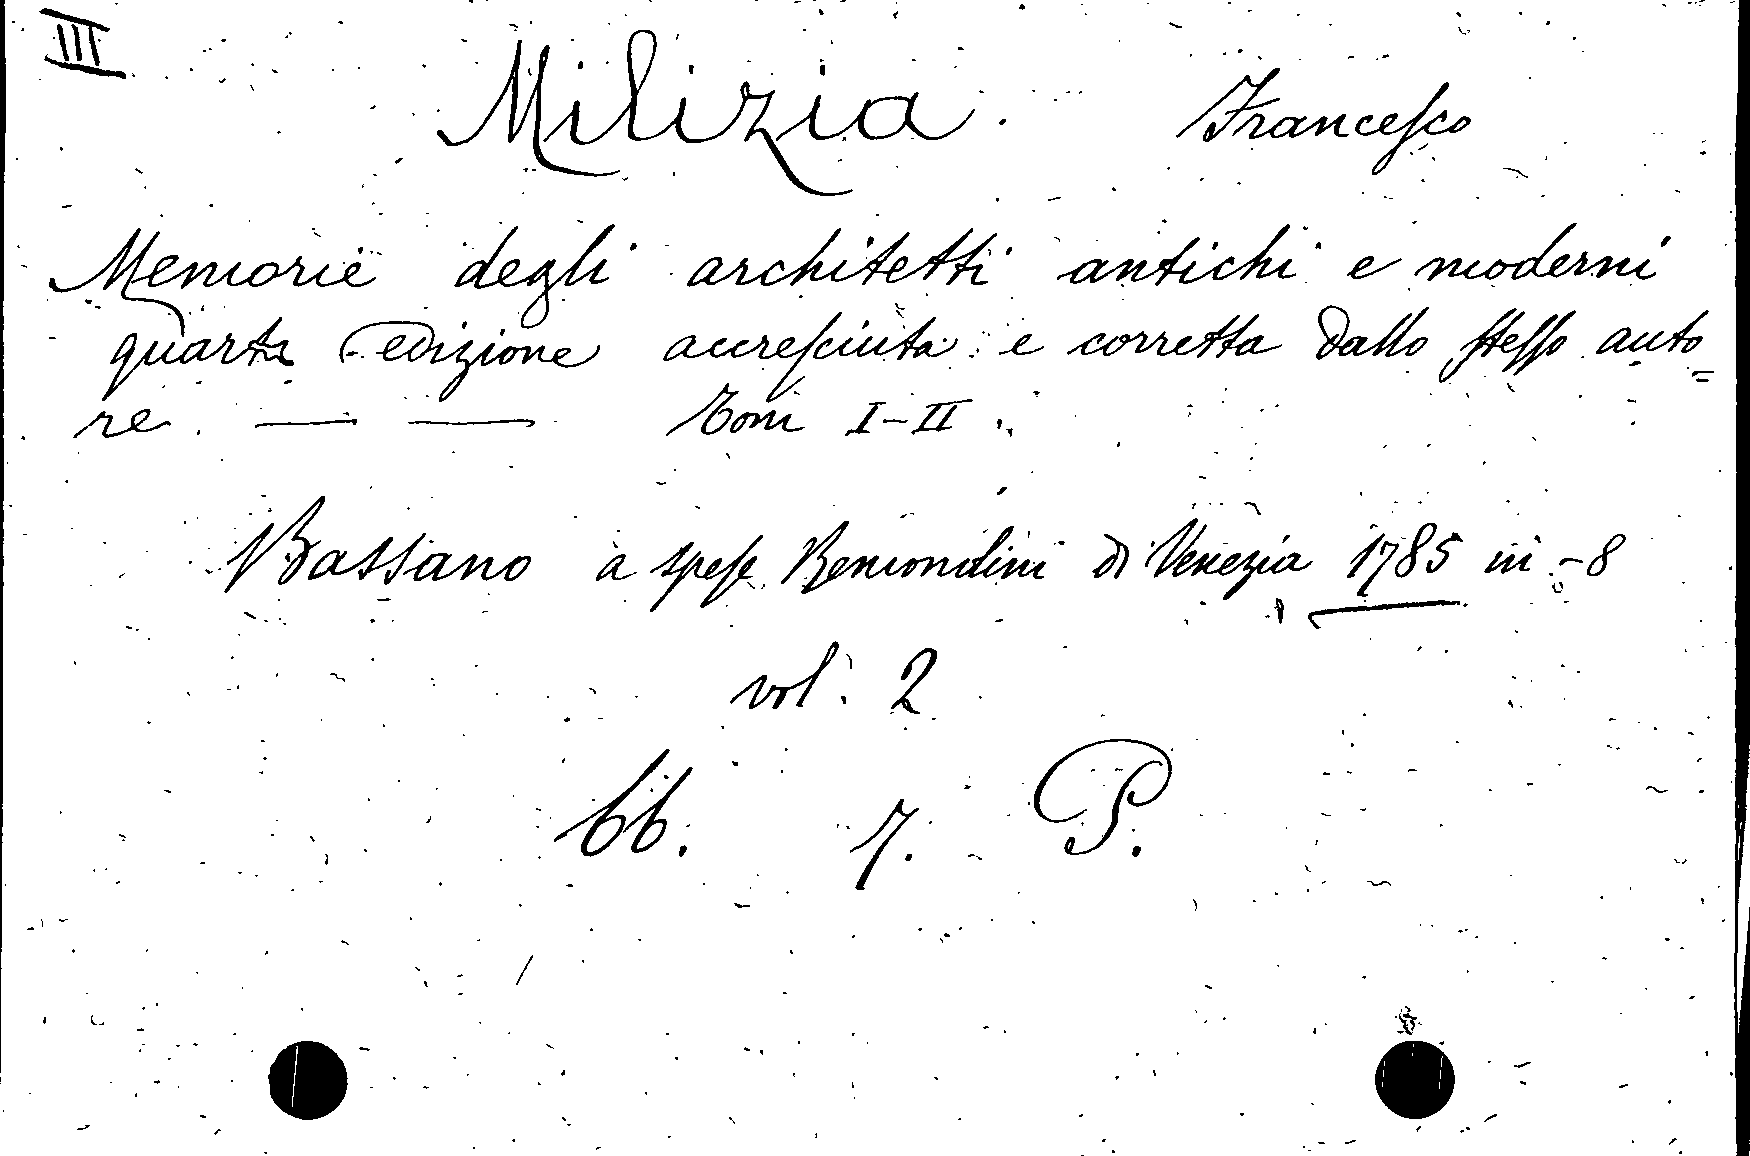 III
Milizia. Francesco
Memorie degli architetti antichi e moderni
quarta edizione accresciuta e corretta dallo stesso auto=
re. — — Tomi I-II.
Bassano a spese Remondini di Venezia 1785 in-8
vol. 2
bb. 7. P.